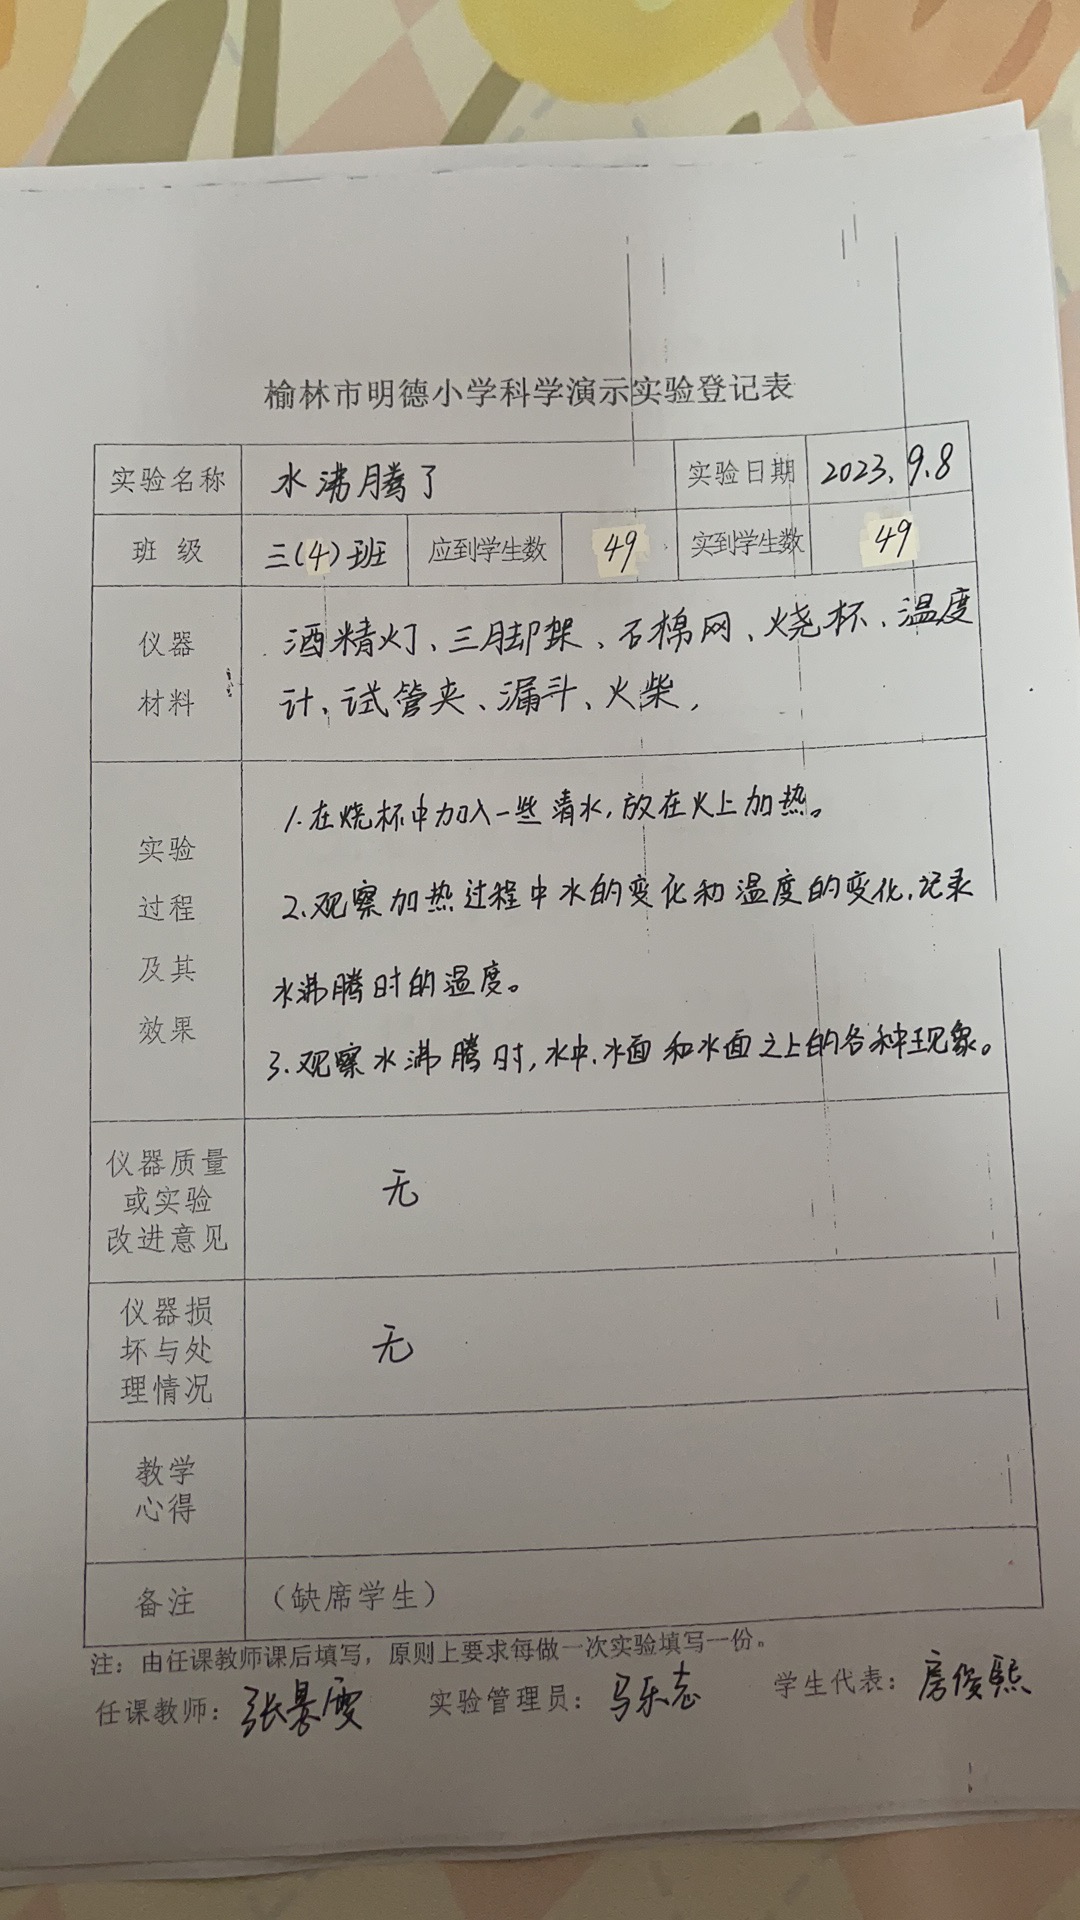 榆林市明德小学科学演示实验登记表
实验名称 水沸腾了 实验日期 2023.9.8
班 级 三(4)班 应到学生数 49 实到学生数 49
仪器 酒精灯、三脚架、石棉网、烧杯、温度
材料 计、试管夹、漏斗、火柴,
实验
过程
及其
效果
1.在烧杯中加入一些清水,放在火上加热。
2.观察加热过程中水的变化和温度的变化,记录
水沸腾时的温度。
3.观察水沸腾时,水中、水面和水面之上的各种现象。
仪器质量
或实验
改进意见
无
仪器损
坏与处
理情况
无
教学
心得
备注 (缺席学生)
注:由任课教师课后填写,原则上要求每做一次实验填写一份。
任课教师: 张 雯 实验管理员: 马乐志 学生代表: 房俊熙